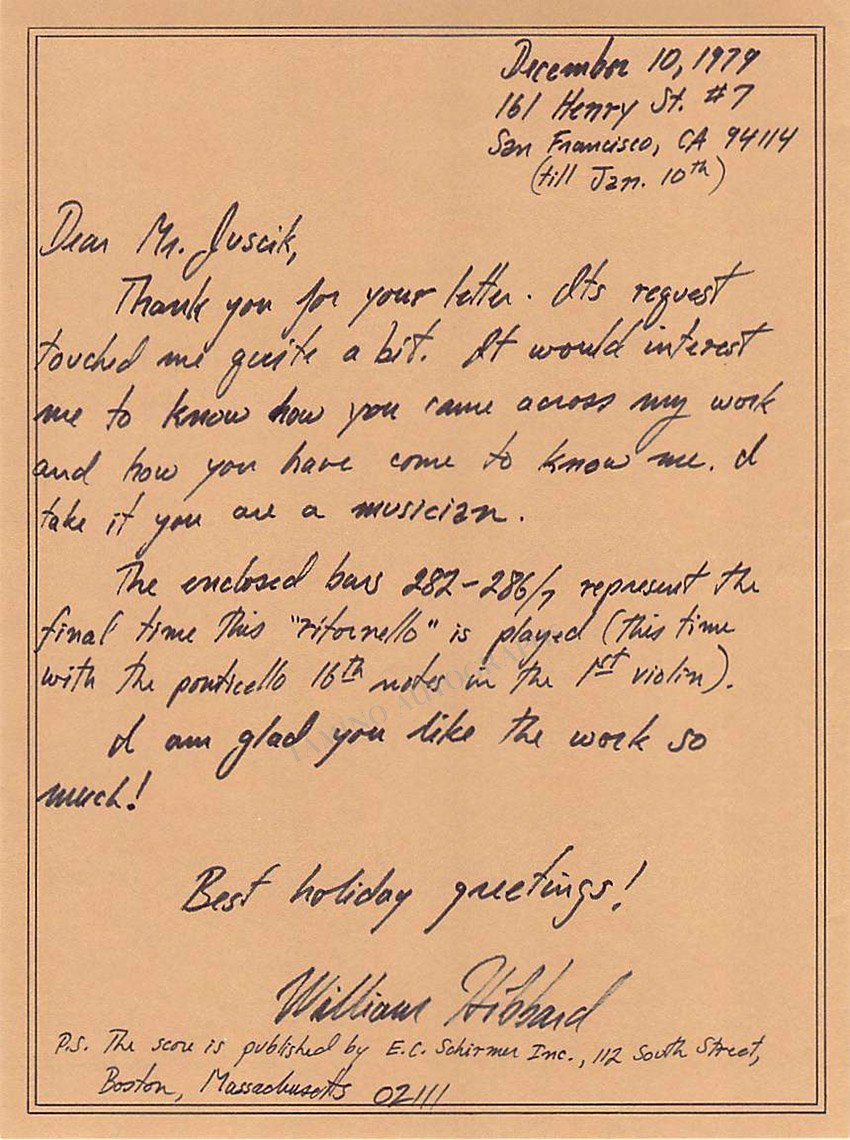 December 10, 1979
161 Henry St. #7
San Francisco, CA 94114
(till Jan. 10th)
Dear Mr. Juscik,
Thank you for your letter. Its request
touched me quite a bit. It would interest
me to know how you came across my work
and how you have come to know me. I
take it you are a musician.
The enclosed bars 282-286/7 represent the
final time this "ritornello" is played (this time
with the ponticello 16th notes in the 1st violin).
I am glad you like the work so
much!
Best holiday greetings!
William Hibbard
P.S. The score is published by E.C. Schirmer Inc., 112 South Street,
Boston, Massachusetts 02111
TAMINO AUTOGRAPHS